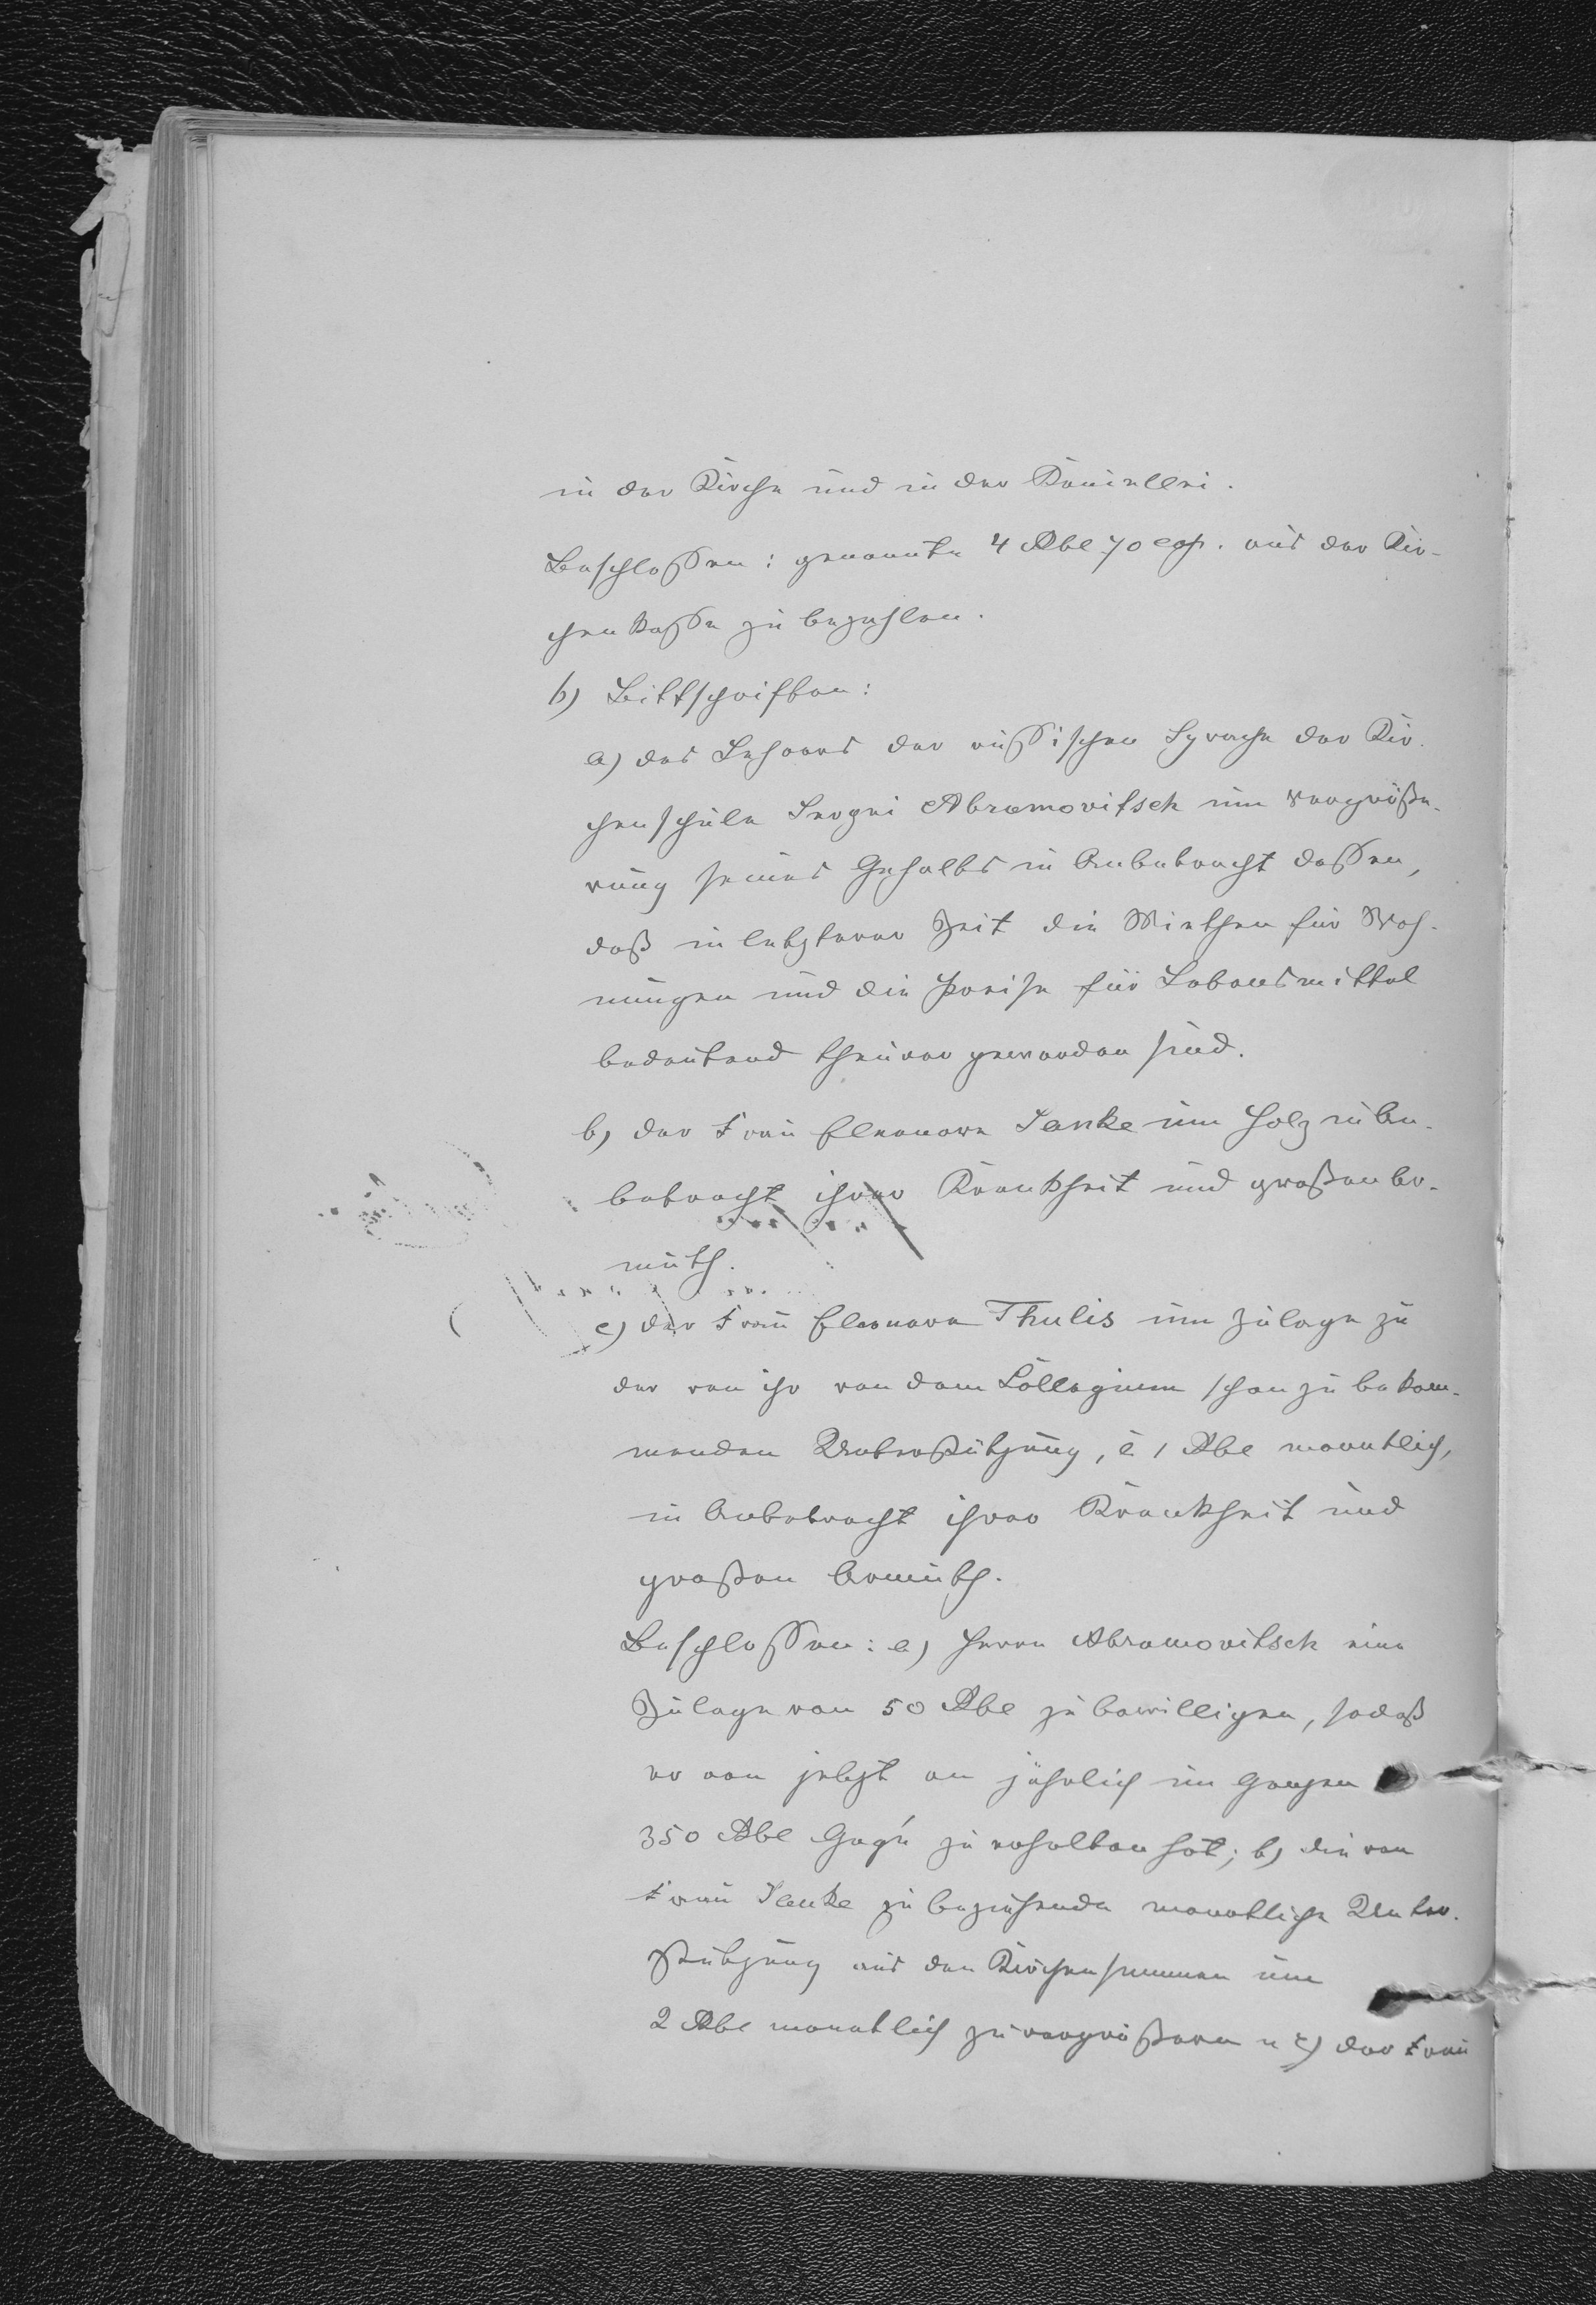 in der Kirche und in der Kanzellei.
Beschloßen: genannte 4 Rbl 70 cop. aus der Kir-
chenkasse zu bezahlen.
b) Bittschriften:
a) des Lehrers der rußischen Sprache der Kir-
chenschule Sergei Abramovitsch um Vergröße-
rung seines Gehalts in Anbetracht dessen,
daß in letzterer Zeit die Miethen für Woh-
nungen und die Preise für Lebensmittel
bedeutend theurer geworden sind.
b) der Frau Eleonore Janke um Holz in An-
betracht ihrer Krankheit und großen Ar-
muth.
c) der Frau Eleonora Thulis um Zulage zu
der von ihr von dem Collegium schon zu bekom-
menden Unterstützung, à 1 Rbl monatlich,
in Anbetracht ihrer Krankheit und
großen Armuth.
Beschloßen: a) Herrn Abramovitsch eine
Zulage von 50 Rbl zu bewilligen, sodaß
er von jetzt an jährlich im Ganzen
350 Rbl Gage zu erhalten hat; b) die von
Frau Janke zu beziehende monatliche Unter-
stützung aus den Kirchensummen um
2 Rbl monatlich zu vergrößern u c) der Frau